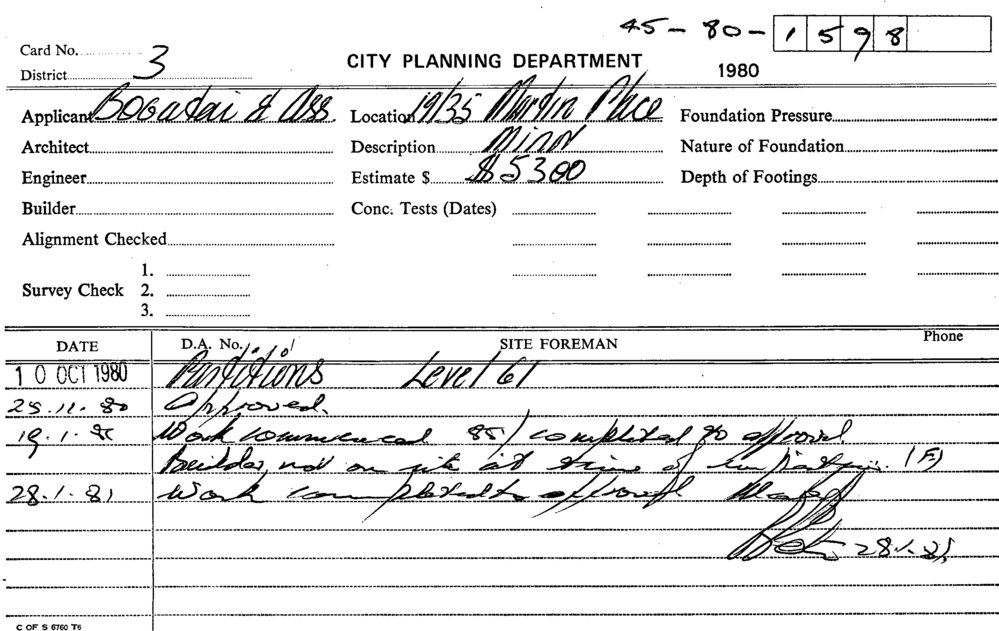 45-80-1598
Card No.
District 3
CITY PLANNING DEPARTMENT
1980
Applicant Bogardai & Ass Location 19/35 Martin Place Foundation Pressure
Architect Description Minor Nature of Foundation
Engineer Estimate $ $5300 Depth of Footings
Builder Conc. Tests (Dates)
Alignment Checked
1.
Survey Check 2.
3.
DATE D.A. No. SITE FOREMAN Phone
10 OCT 1980 Partitions Level 61
25.11.80 Approved.
19.1.81 Work commenced 85% completed to approval
Builder not on site at time of inspection. (F)
28.1.81 Work completed to approval
28.1.81
C OF S 6760 T6